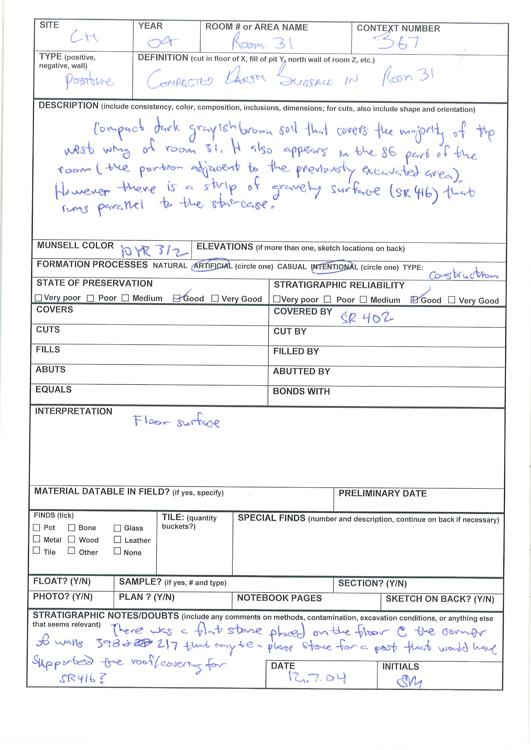 SITE CH
YEAR 04
ROOM # or AREA NAME Room 31
CONTEXT NUMBER 367
TYPE (positive, negative, wall) Positive
DEFINITION (cut in floor of X, fill of pit Y, north wall of room Z, etc.) Compacted Earth Surface in Room 31
DESCRIPTION (include consistency, color, composition, inclusions, dimensions; for cuts, also include shape and orientation)
Compact dark grayish brown soil that covers the majority of the
west wing of room 31. It also appears in the SE part of the
room (the portion adjacent to the previously excavated area).
However there is a strip of gravely surface (SR 416) that
runs parallel to the staircase.
MUNSELL COLOR 10YR 3/2
ELEVATIONS (if more than one, sketch locations on back)
FORMATION PROCESSES NATURAL ARTIFICIAL (circle one) CASUAL INTENTIONAL (circle one) TYPE: Construction
STATE OF PRESERVATION
Very poor Poor Medium Good Very Good
STRATIGRAPHIC RELIABILITY
Very poor Poor Medium Good Very Good
COVERS
COVERED BY SR 402
CUTS
CUT BY
FILLS
FILLED BY
ABUTS
ABUTTED BY
EQUALS
BONDS WITH
INTERPRETATION
Floor surface
MATERIAL DATABLE IN FIELD? (if yes, specify)
PRELIMINARY DATE
FINDS (tick)
Pot Bone Glass
Metal Wood Leather
Tile Other None
TILE: (quantity buckets?)
SPECIAL FINDS (number and description, continue on back if necessary)
FLOAT? (Y/N)
SAMPLE? (if yes, # and type)
SECTION? (Y/N)
PHOTO? (Y/N)
PLAN ? (Y/N)
NOTEBOOK PAGES
SKETCH ON BACK? (Y/N)
STRATIGRAPHIC NOTES/DOUBTS (include any comments on methods, contamination, excavation conditions, or anything else
that seems relevant) There was a flat stone placed on the floor @ the corner
of walls 398 217 that may be a place stone for a post that would have
supported the roof/covering for
SR416?
DATE 12.7.04
INITIALS SM